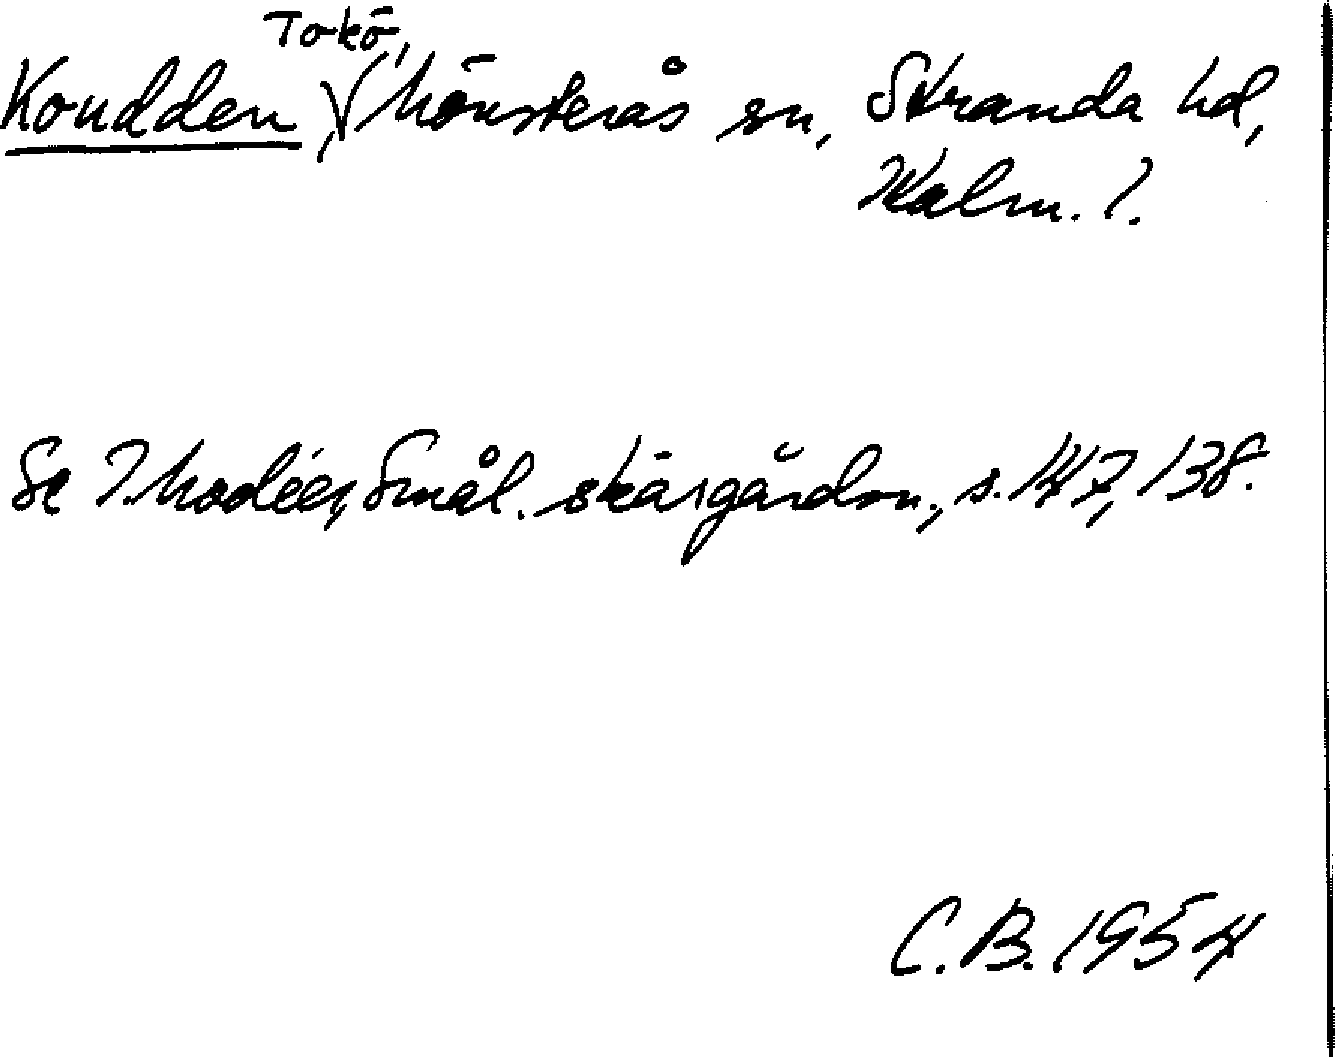 Tokö,
Koudden, √ Mönsterås sn, Stranda hd,
Kalm. l.
Se I. Modéer, Smål. skärgårdsn., s. 147, 138.
C.B. 1954